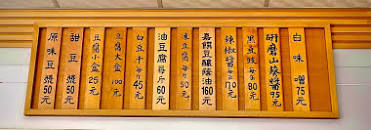 白味噌75元
研磨山葵醬95元
黑豆豉80元
辣椒醬70元
豆釀蔭油160元
凍豆腐每斤50元
油豆腐每斤60元
白豆干每斤45元
豆腐大盒100元
豆腐小盒25元
甜豆漿50元
原味豆漿50元